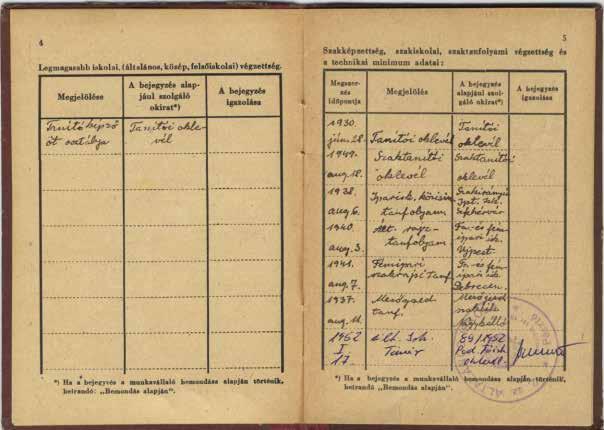 4
Legmagasabb iskolai, (általános, közép, felsőiskolai) végzettség.
Megjelölése
A bejegyzés alap-
jául szolgáló
okirat*)
A bejegyzés
igazolása
öt osztálya
Tanítói okle-
vél
*) Ha a bejegyvés a munkavállaló bemondása alapján történik,
beirandó: „Bemondás alapján".
5
Szakképzettség, szakiskolai, szaktanfolyami végzettség és
a technikai minimum adatai:
Megszer-
zés
időpontja
Megjelölés
A bejegyzés
alapjául szol-
gáló okirat*)
A bejegyzés
igazolása
1930.
jún. 28.
Tanítói oklevél
Tanítói
oklevél
1949.
aug. 18.
Szaktanítói
oklevél
Szaktanítói
oklevél
1938.
aug. 6.
tanfolyam
1940.
aug. 3.
tanfolyam
Fa- és fém-
ipari isk.
Ujpest
1941.
aug. 7.
Fémipari
szakrajzi tanf.
Fa- és fém-
ipari isk.
Debrecen.
1937.
aug. 11.
Mezőgazd
tanf.
Mezőgazd
1952
I.
17.
ált. isk.
Tanár
89/1952
Ped. Főisk
oklevél
*) Ha a bejegyzés a munkavállaló bemondása alapján történik,
beirandó: „Bemondás alapján".